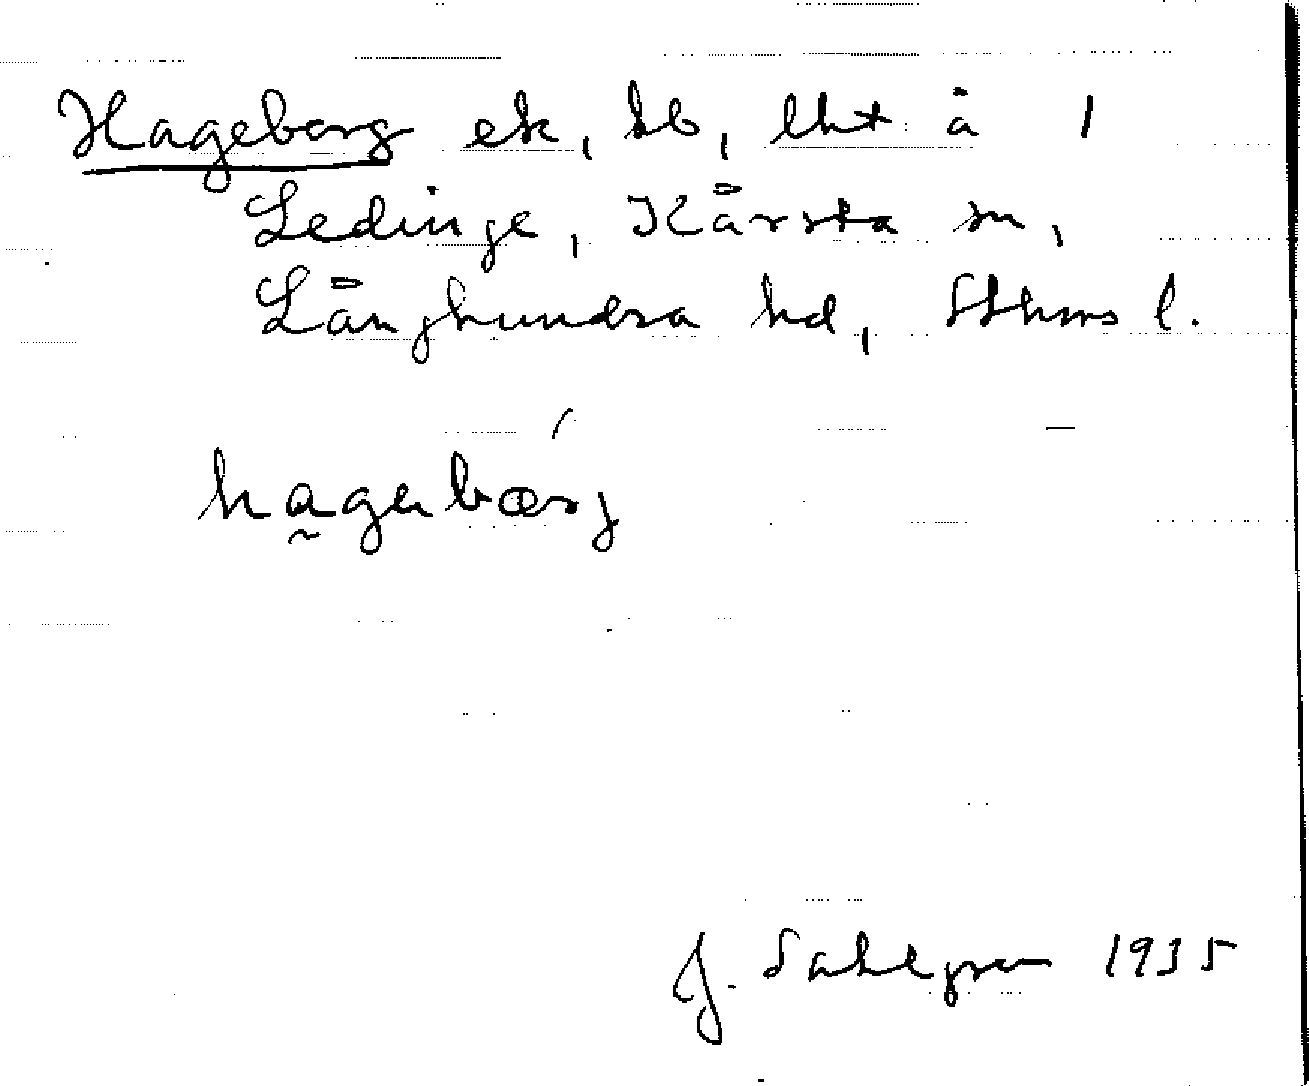 Hageborg ek, sb, lht å 1
Ledinge, Kårsta sn,
Långhundra hd, Sthms l.
hagebœrj
J. Sahlgren 1935